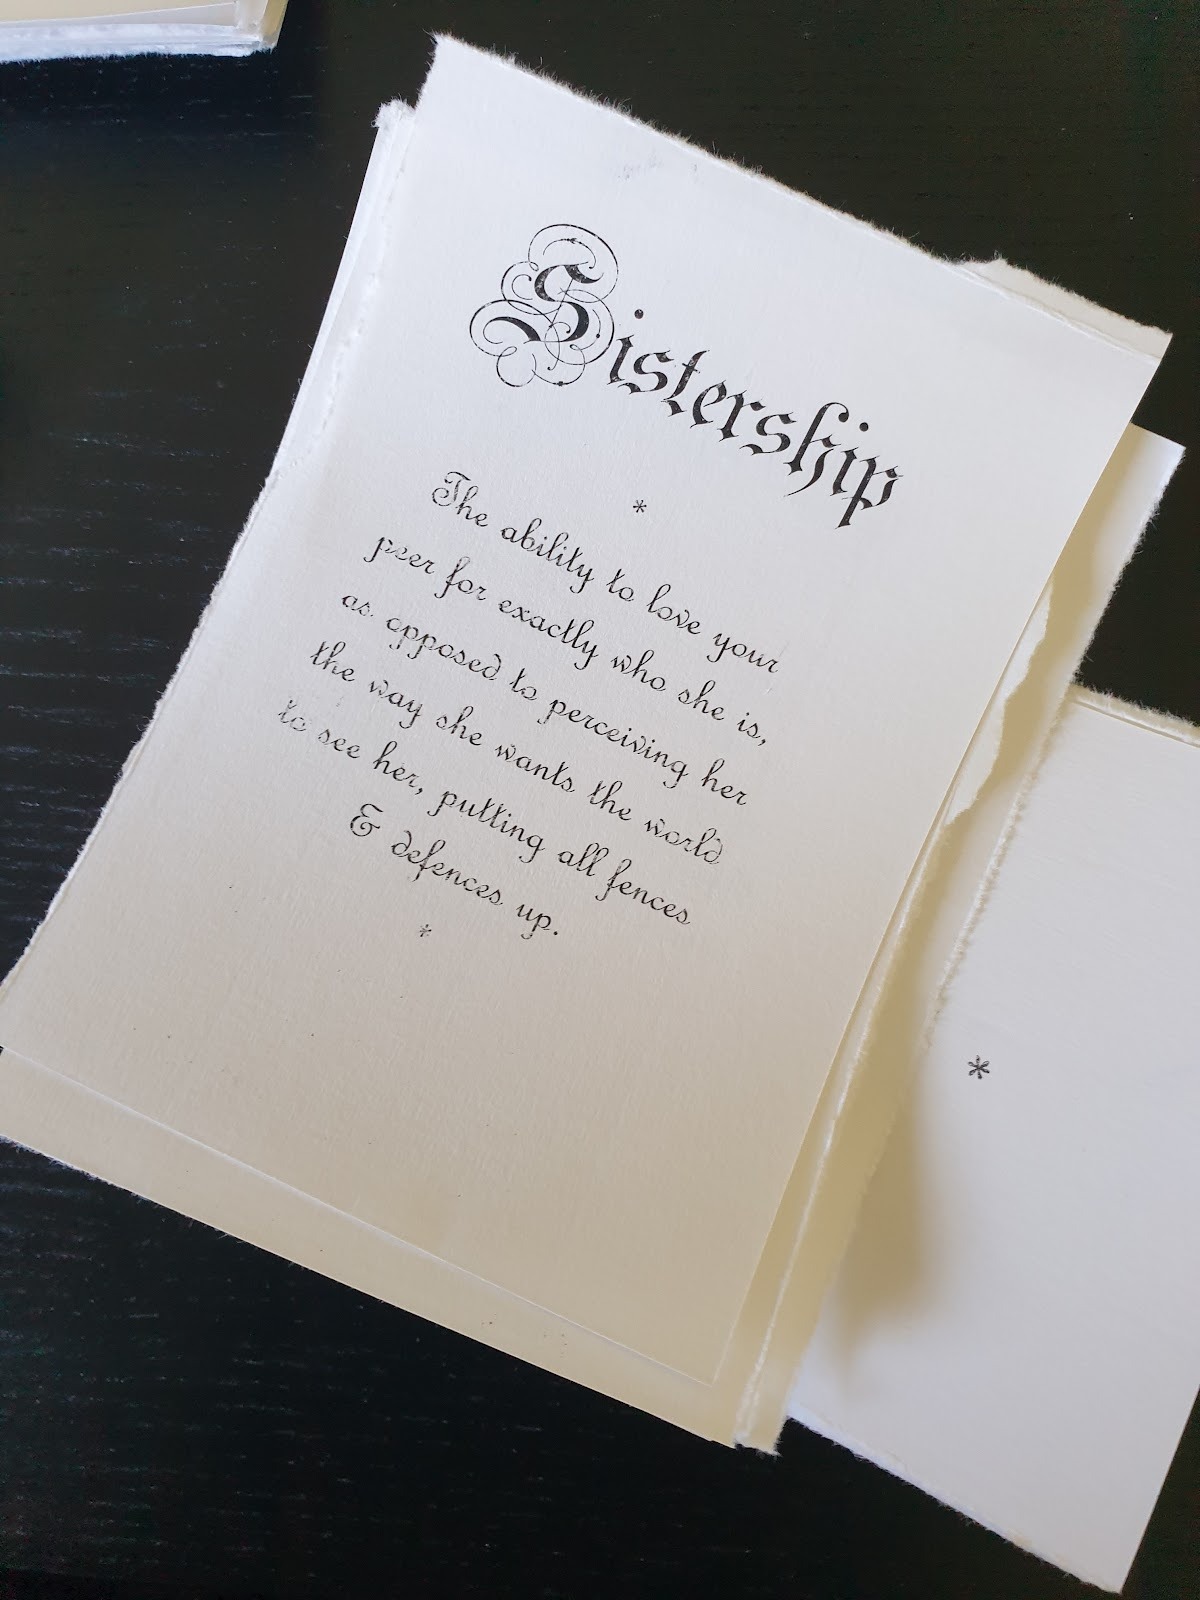 Sistership
*
The ability to love your
peer for exactly who she is,
as opposed to perceiving her
the way she wants the world
to see her, putting all fences
& defences up.
*
*